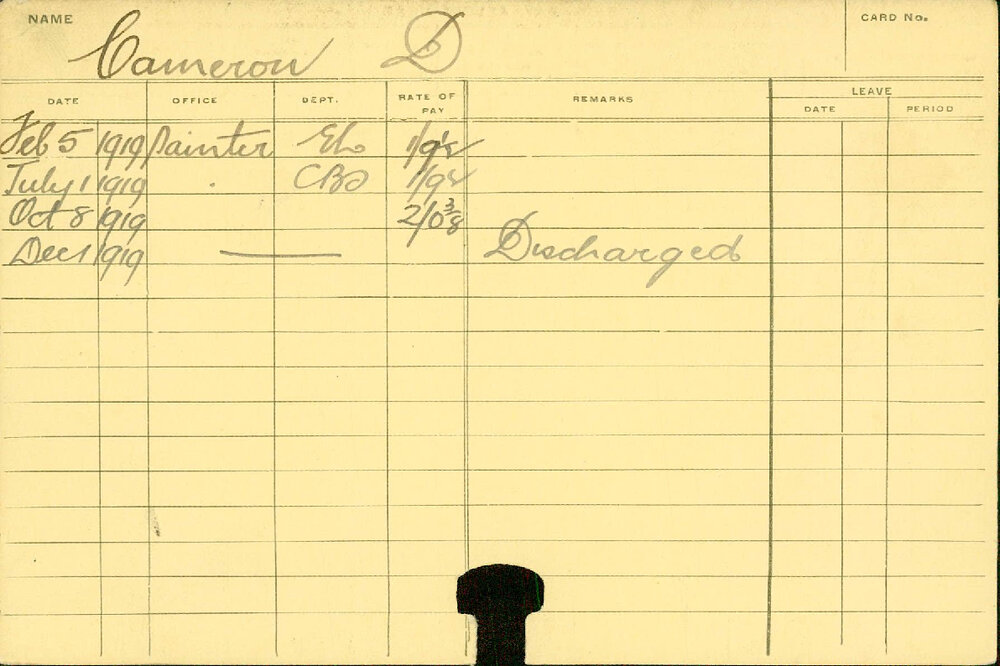 NAME Cameron D CARD No.
DATE OFFICE DEPT. RATE OF PAY REMARKS LEAVE
DATE PERIOD
Feb 5 1919 Painter 1/9½
July 1 1919 . CBD
Oct 8 1919 2/0 3/8
Dec 1 1919 — Discharged